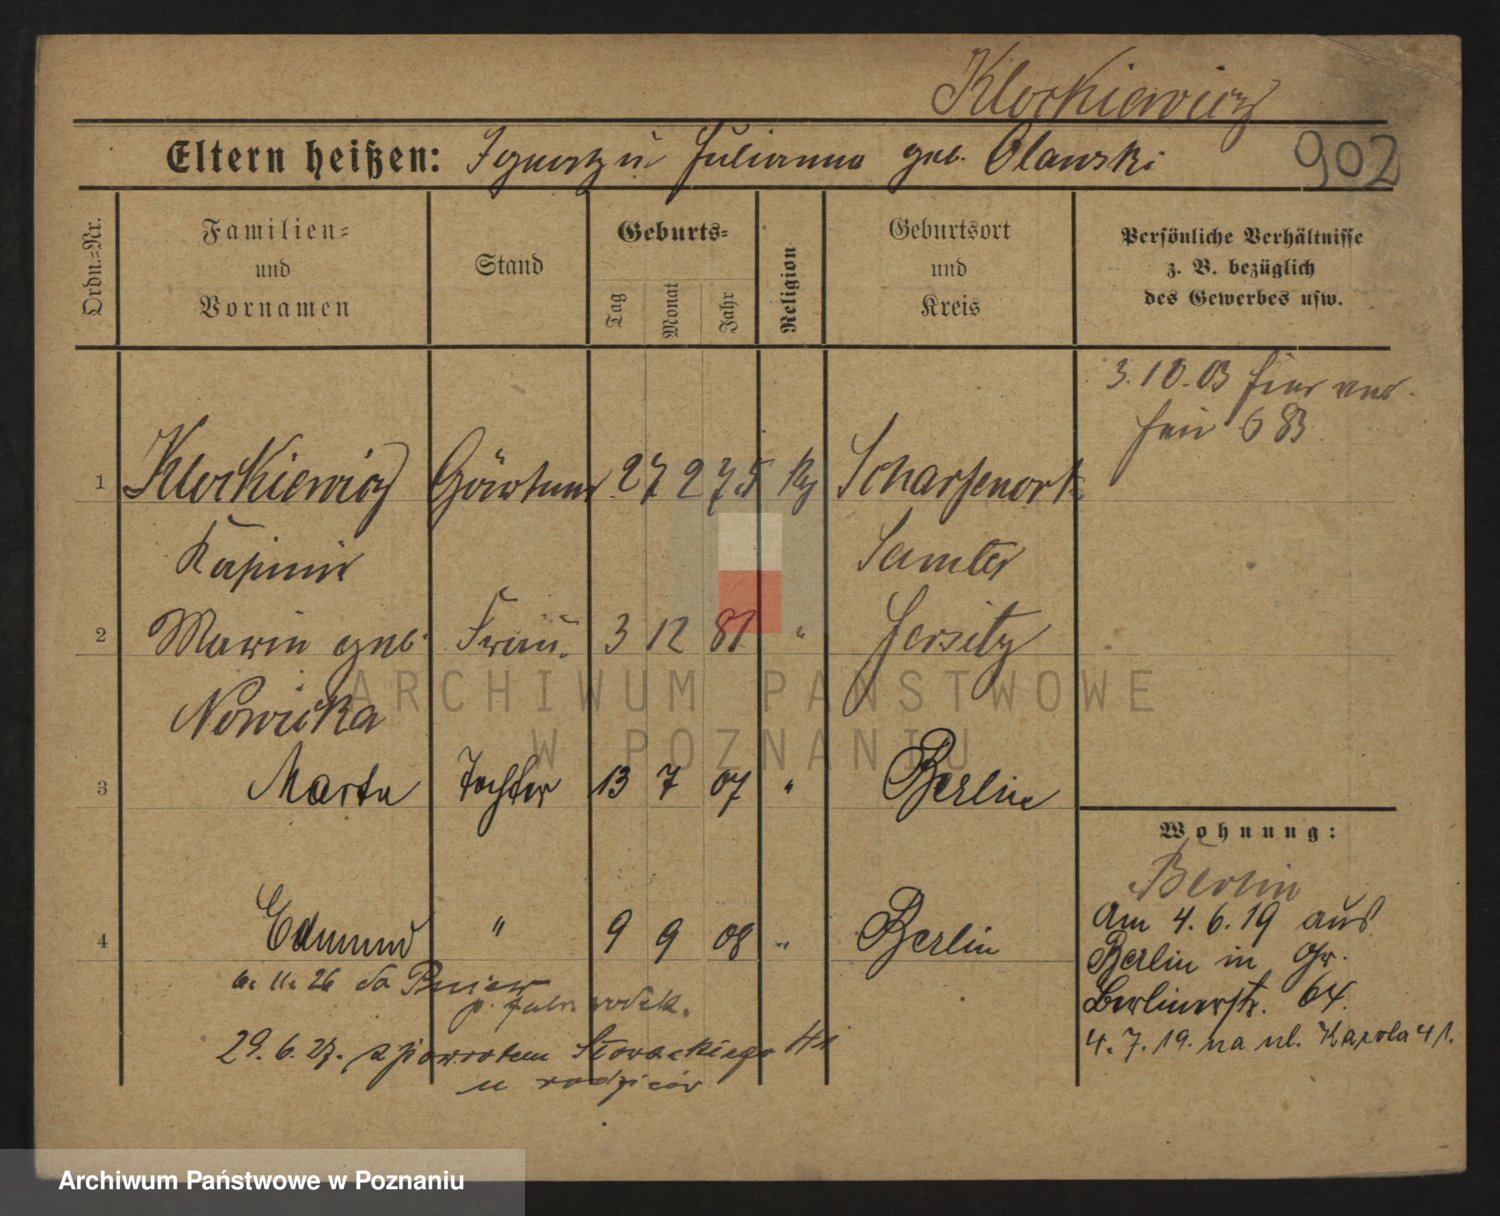 Klockiewicz
Eltern heißen: Ignatz u Julianna geb. Olanski
902
Ordn.-Nr.
Familien-
und
Vornamen
Stand
Geburts-
Tag
Monat
Jahr
Religion
Geburtsort
und
Kreis
Persönliche Verhältnisse
z. B. bezüglich
des Gewerbes usw.
3.10.03
1 Klockiewicz Gärtner 27 2 75 Scharfenort
Kasimir Samter
2 Maria geb. Frau 3 12 81 " Jersitz
Nowicka
3 Marta Tochter 13 7 07 " Berlin
4 Edmund " 9 9 08 " Berlin
6. 11. 26 do Pniew
29. 6. 27. z powrotem Słowackiego 41
u rodziców
Wohnung:
Berlin
Am 4. 6. 19 aus
Berlin in Gr.
Berlinerstr. 64.
4. 7. 19. na ul. Karola 41.
ARCHIWUM PAŃSTWOWE
W POZNANIU
Archiwum Państwowe w Poznaniu